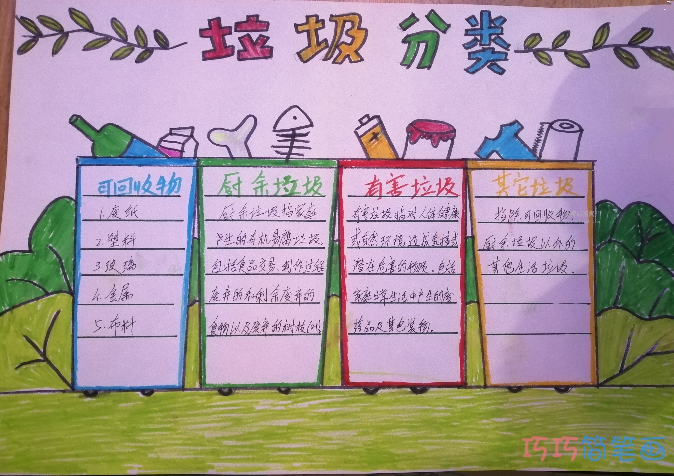 垃圾分类
可回收物
1.废纸
2.塑料
3.玻璃
4.金属
5.布料
厨余垃圾
厨余垃圾指家庭
产生的有机易腐垃圾
包括食品交易、制作过程
废弃的和剩余废弃的
食物
有害垃圾
有害垃圾指对人体健康
或自然环境造成直接或
潜在危害的物质,包括
家庭日常生活中产生的废
药品及其包装物.
其它垃圾
指除可回收物
厨余垃圾以外的
其他生活垃圾.
巧巧简笔画